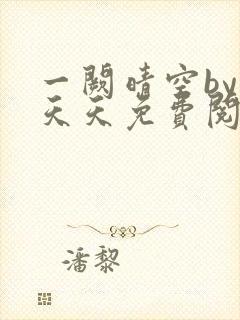 一阙晴空by
天天免費閱
潘黎